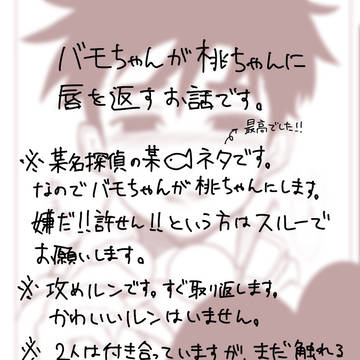 バモちゃんが桃ちゃんに
唇を返すお話です。
最高でした!!
※某名探偵の某🐟ネタです。
なのでバモちゃんが桃ちゃんにします。
嫌だ!!許せん!!という方はスルーで
お願いします。
※攻めルンです。すぐ取り返します。
かわいいルンはいません。
※2人は付き合っていますが、まだ触れる